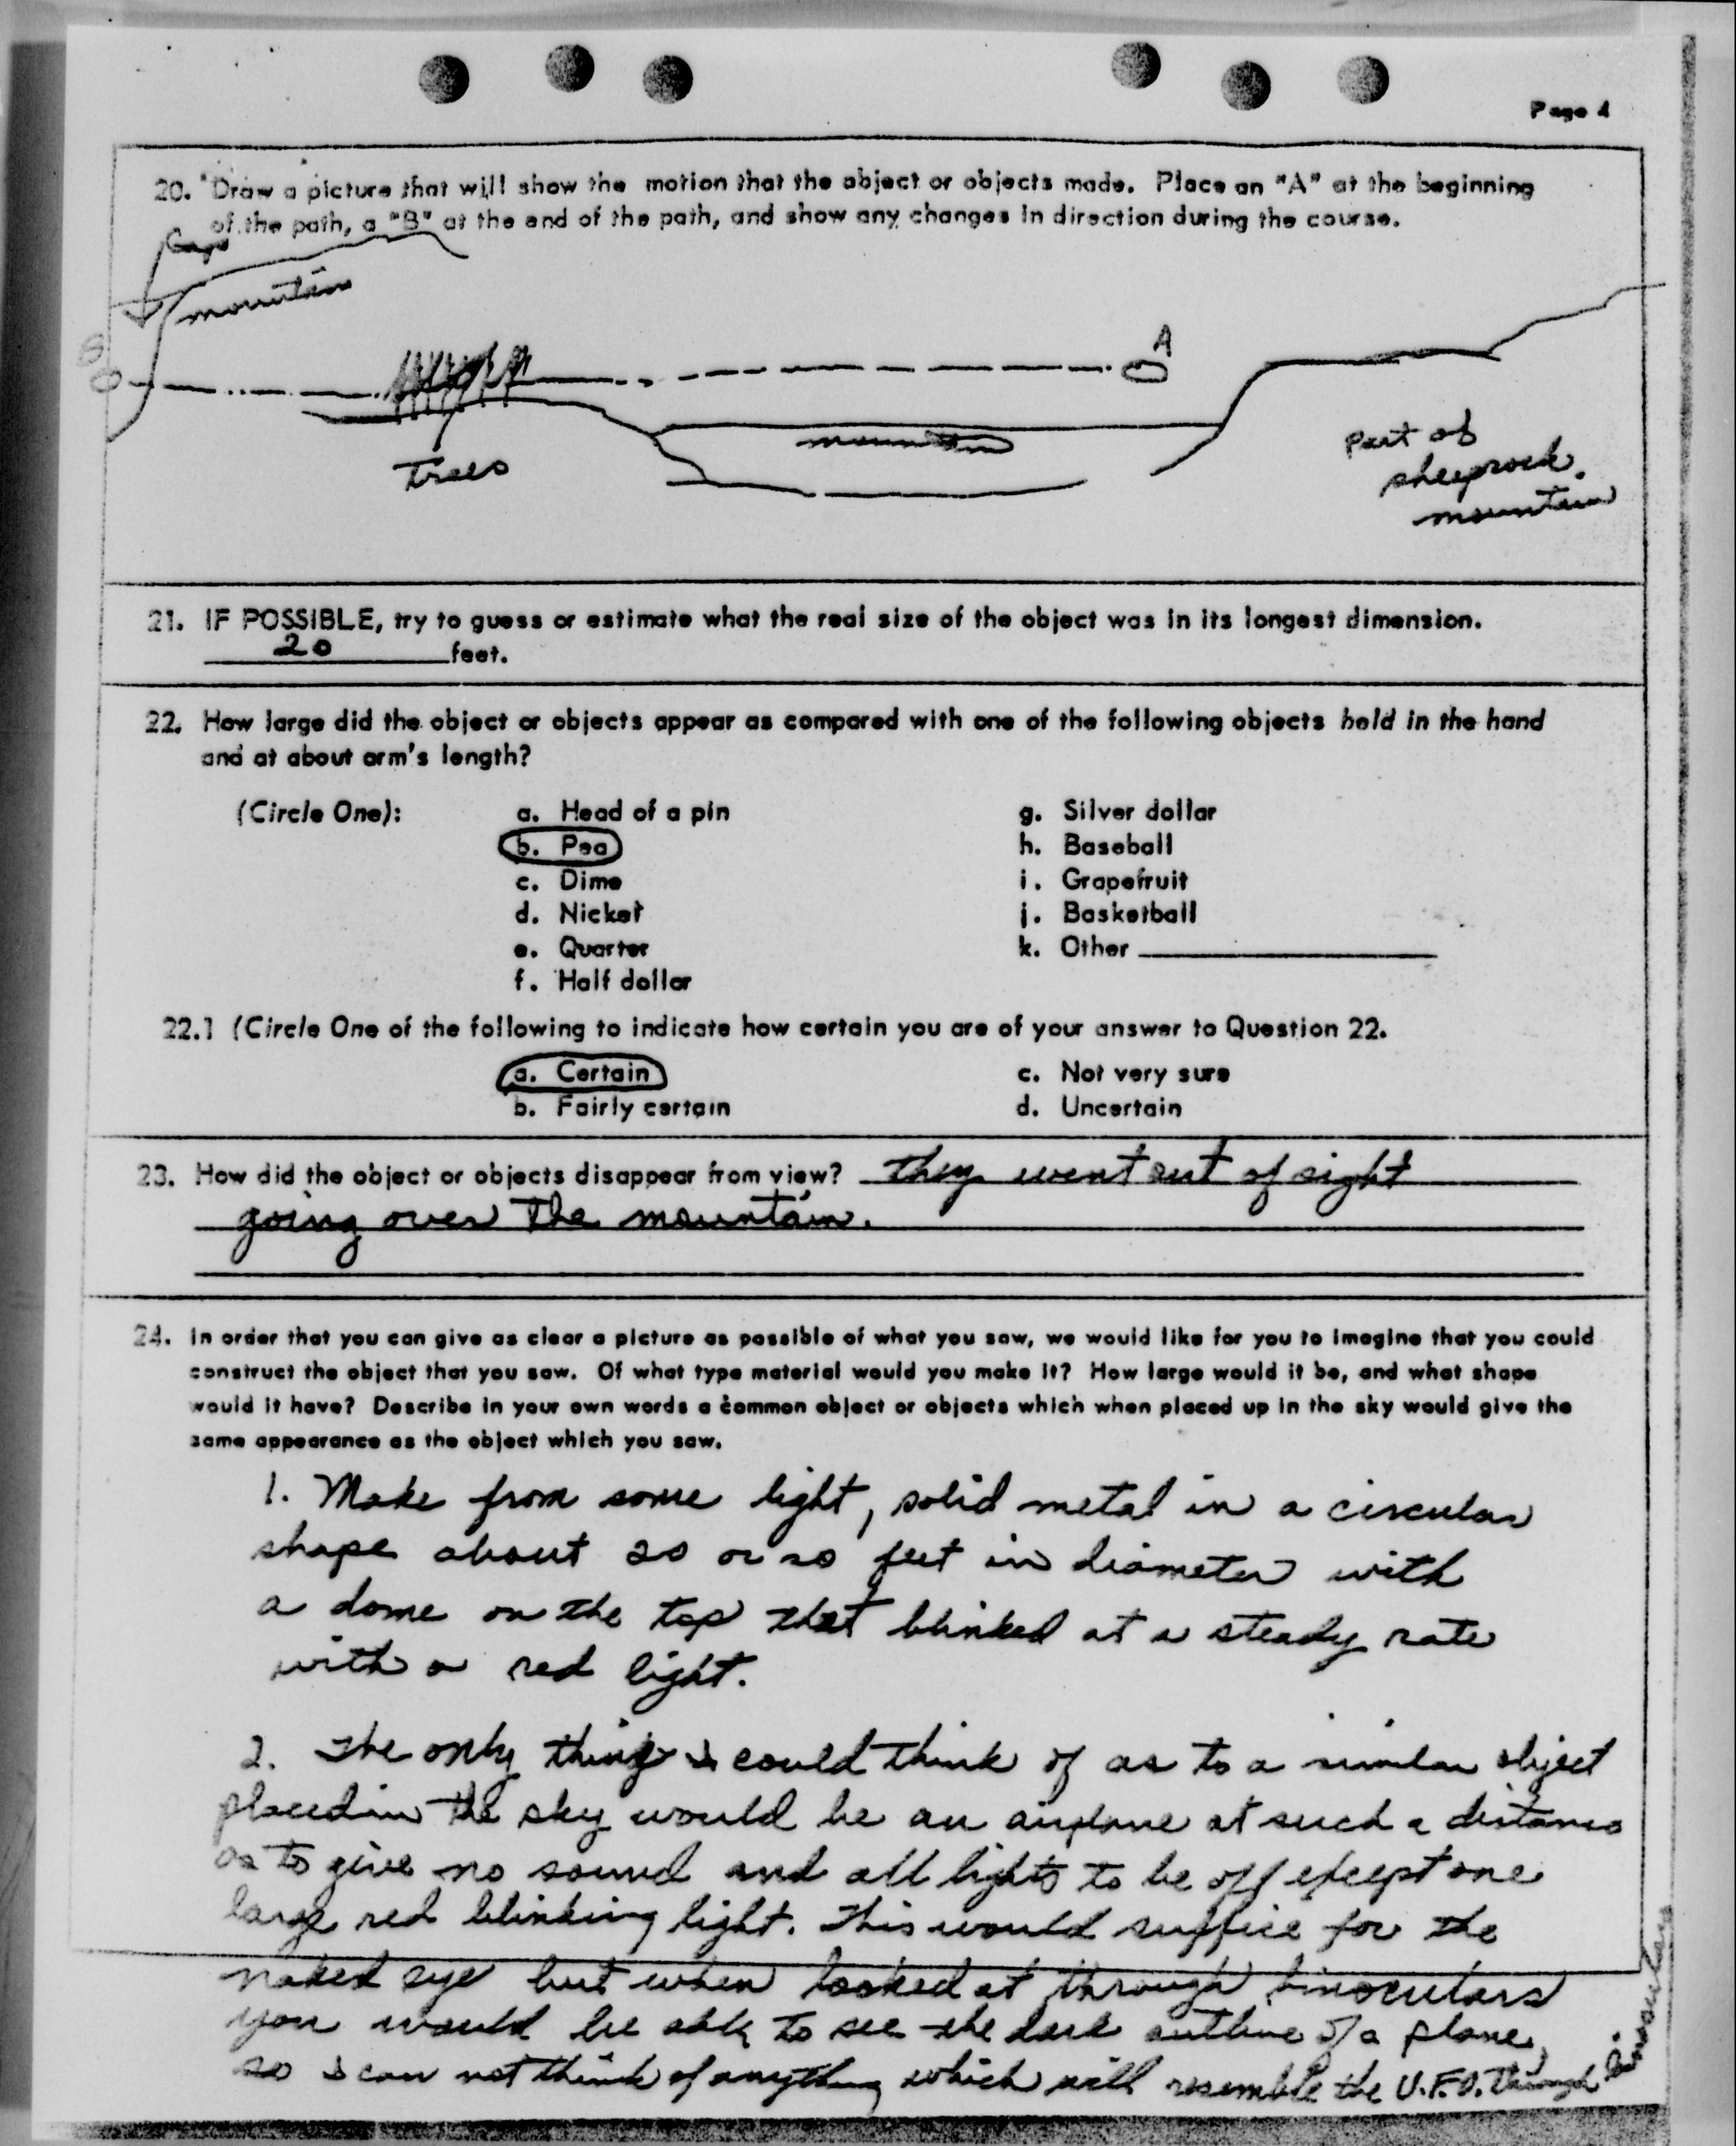 Page 4
20. Draw a picture that will show the motion that the object or objects made. Place an "A" at the beginning
of the path, a "B" at the end of the path, and show any changes in direction during the course.
mountain
B
A
mountain
Trees
Part of
sheeprock
mountain
21. IF POSSIBLE, try to guess or estimate what the real size of the object was in its longest dimension.
20 feet.
22. How large did the object or objects appear as compared with one of the following objects held in the hand
and at about arm's length?
(Circle One): a. Head of a pin g. Silver dollar
b. Pea h. Baseball
c. Dime i. Grapefruit
d. Nickel j. Basketball
e. Quarter k. Other
f. Half dollar
22.1 (Circle One of the following to indicate how certain you are of your answer to Question 22.
a. Certain c. Not very sure
b. Fairly certain d. Uncertain
23. How did the object or objects disappear from view? They went out of sight
going over the mountain.
24. In order that you can give as clear a picture as possible of what you saw, we would like for you to imagine that you could
construct the object that you saw. Of what type material would you make it? How large would it be, and what shape
would it have? Describe in your own words a common object or objects which when placed up in the sky would give the
same appearance as the object which you saw.
1. Make from some light, solid metal in a circular
shape about 20 or so feet in diameter with
a dome on the top that blinked at a steady rate
with a red light.
2. The only thing I could think of as to a similar object
placed in the sky would be an airplane at such a distance
as to give no sound and all lights to be off except one
large red blinking light. This would suffice for the
naked eye but when looked at through binoculars
you would be able to see the dark outline of a plane,
so I can not think of anything which will resemble the U.F.O. through binoculars